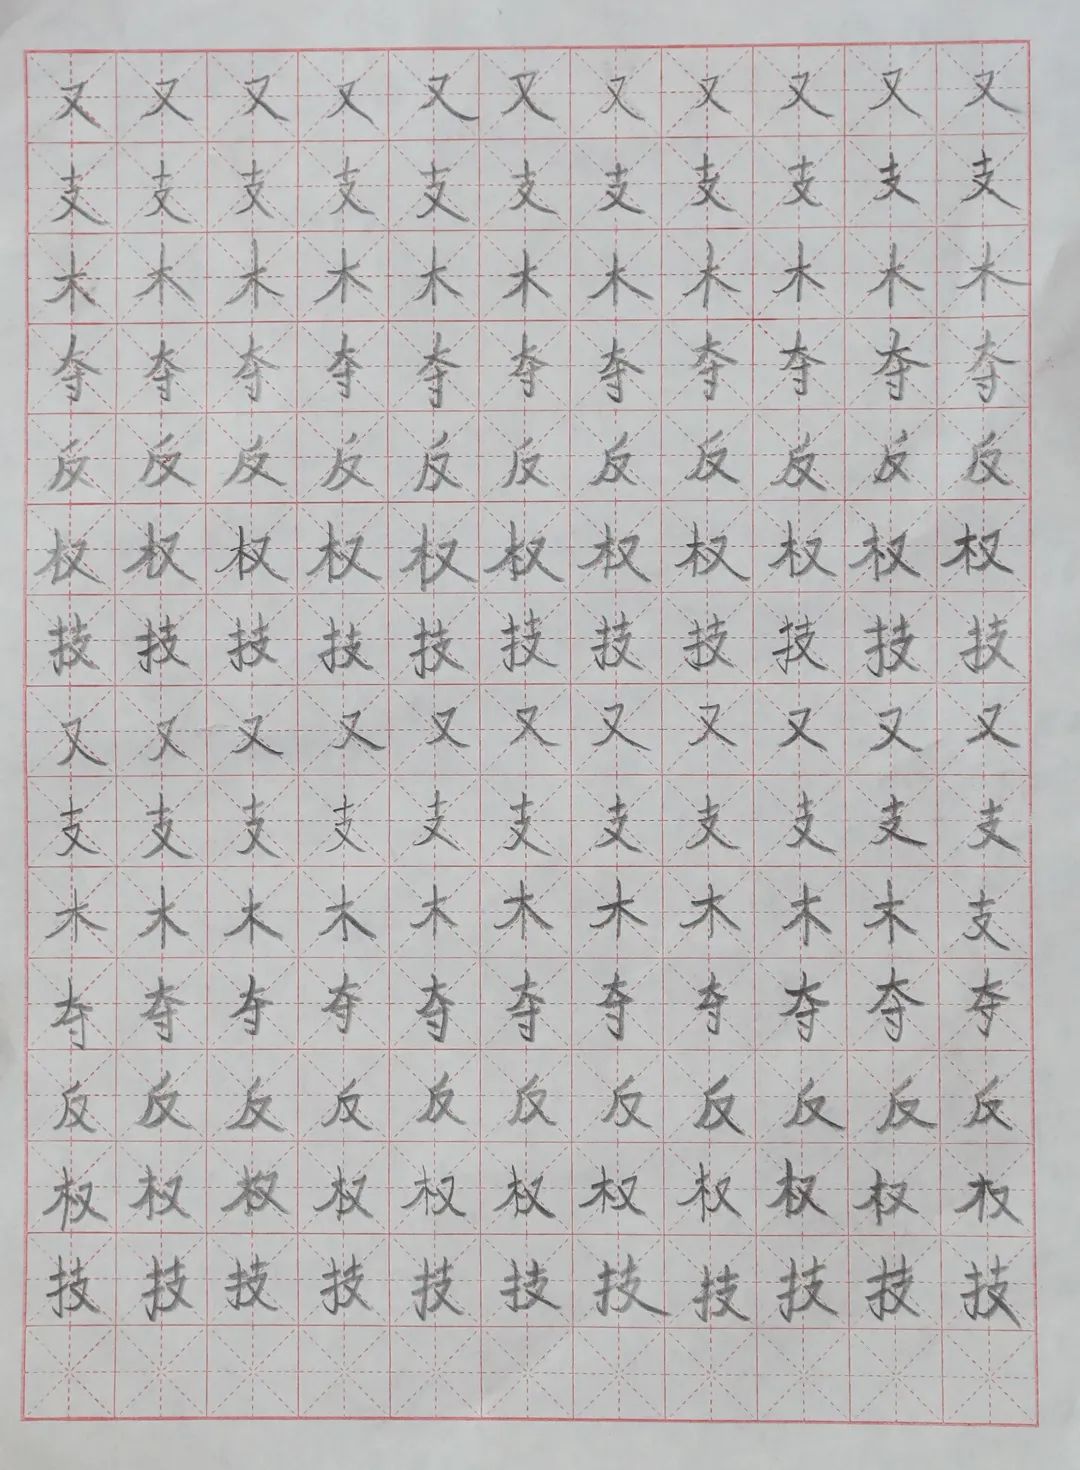 又又又又又又又又又又又
支支支支支支支支支支支
木木木木木木木木木木木
夺夺夺夺夺夺夺夺夺夺夺
反反反反反反反反反反反
权权权权权权权权权权权
技技技技技技技技技技技
又又又又又又又又又又又
支支支支支支支支支支支
木木木木木木木木木木支
夺夺夺夺夺夺夺夺夺夺夺
反反反反反反反反反反反
权权权权权权权权权权权
技技技技技技技技技技技